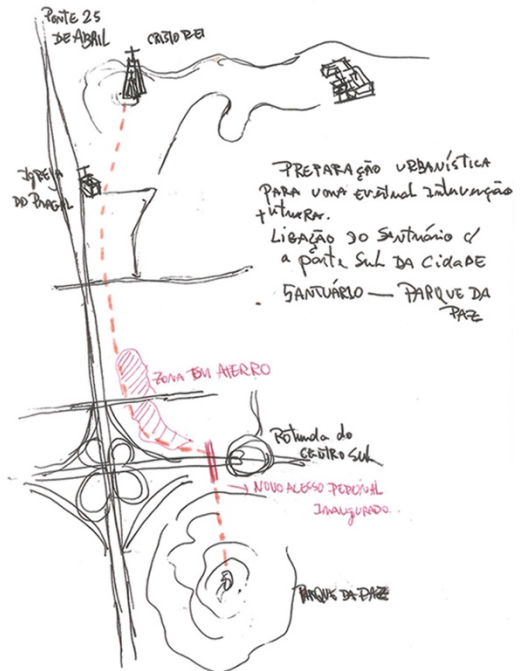 PONTE 25
DE ABRIL
CRISTO REI
IGREJA
DO PRAGAL
PREPARAÇÃO URBANÍSTICA
PARA UMA EVENTUAL INTERVENÇÃO
FUTURA.
LIGAÇÃO DO SANTUÁRIO C/
A PARTE SUL DA CIDADE
SANTUÁRIO — PARQUE DA
PAZ
ZONA EM ATERRO
ROTUNDA DO
CENTRO SUL
→ NOVO ACESSO PEDONAL
INAUGURADO
PARQUE DA PAZ